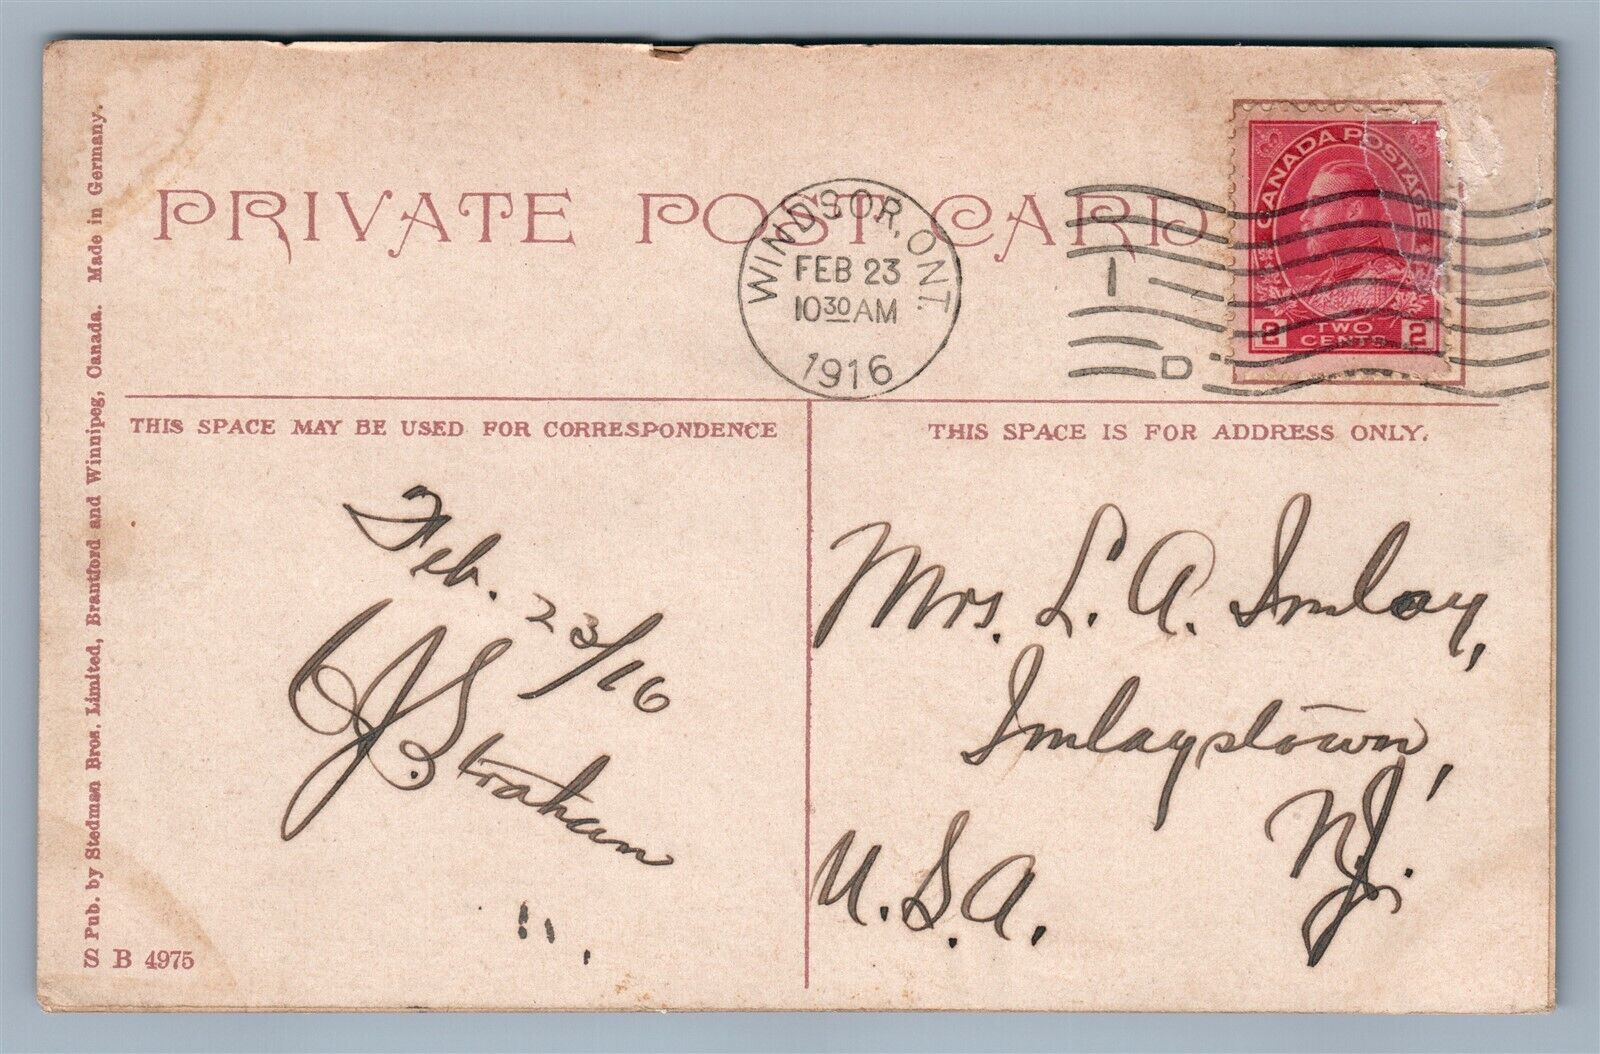 PRIVATE POST CARD
WINDSOR, ONT.
FEB 23
10 30 AM
1916
1
D
CANADA POSTAGE
2 TWO CENTS 2
THIS SPACE MAY BE USED FOR CORRESPONDENCE
THIS SPACE IS FOR ADDRESS ONLY.
Feb. 23/16
J. B. Straham
Mrs. L. A. Imlay,
Imlaystown,
N.J.
U.S.A.
Pub. by Stedman Bros. Limited, Brantford and Winnipeg, Canada. Made in Germany.
S B 4975